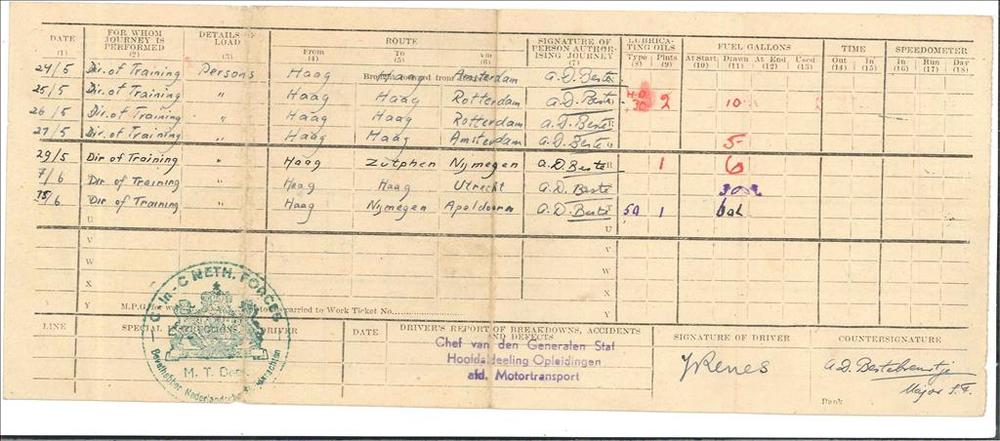 DATE (1) FOR WHOM JOURNEY IS PERFORMED (2) DETAILS OF LOAD (3) ROUTE From (4) To (5) Via (6) SIGNATURE OF PERSON AUTHORISING JOURNEY (7) LUBRICATING OILS Type (8) Pints (9) FUEL GALLONS At Start (10) Drawn (11) At End (12) Used (13) TIME Out (14) In (15) SPEEDOMETER In (16) Run (17) Day (18)
24/5 Dir. of Training Persons Haag Haag Amsterdam
25/5 Dir. of Training " Haag Haag Rotterdam 2 10
26/5 Dir. of Training " Haag Haag Rotterdam
27/5 Dir. of Training " Haag Haag Amsterdam 5
29/5 Dir of Training " Haag Zutphen Nijmegen 1 6
7/6 Dir of Training " Haag Haag Utrecht
15/6 Dir of Training " Haag Nijmegen Apeldoorn 50 1
U U
V V
W W
X X
Y M.P.G. for to be carried to Work Ticket No. Y
LINE SPECIAL INSTRUCTIONS DRIVER DATE DRIVER'S REPORT OF BREAKDOWNS, ACCIDENTS AND DEFECTS SIGNATURE OF DRIVER COUNTERSIGNATURE
C-In-C NETH. FORCES
M. T. Dep
Chef van den Generalen Staf
Hoofdafdeeling Opleidingen
afd. Motortransport
J Renes
Major
Rank